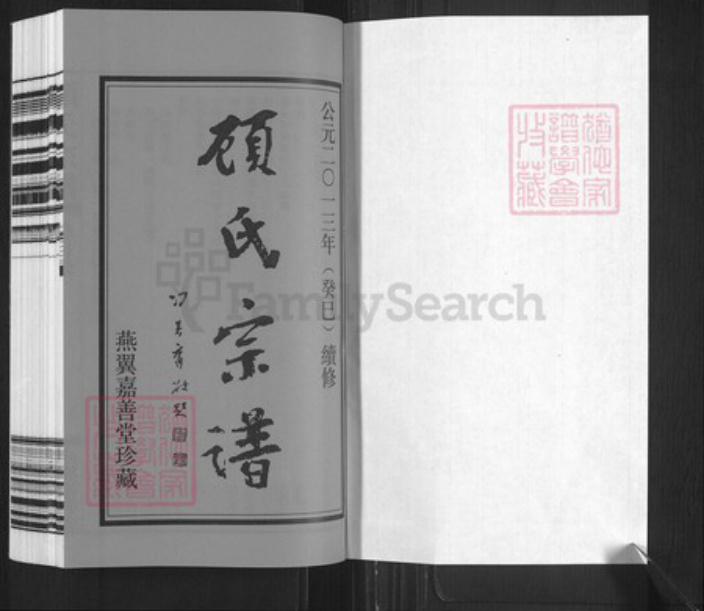 公元二〇一三年（癸巳）續修
顾氏宗譜
敬題
燕翼嘉善堂珍藏
FamilySearch